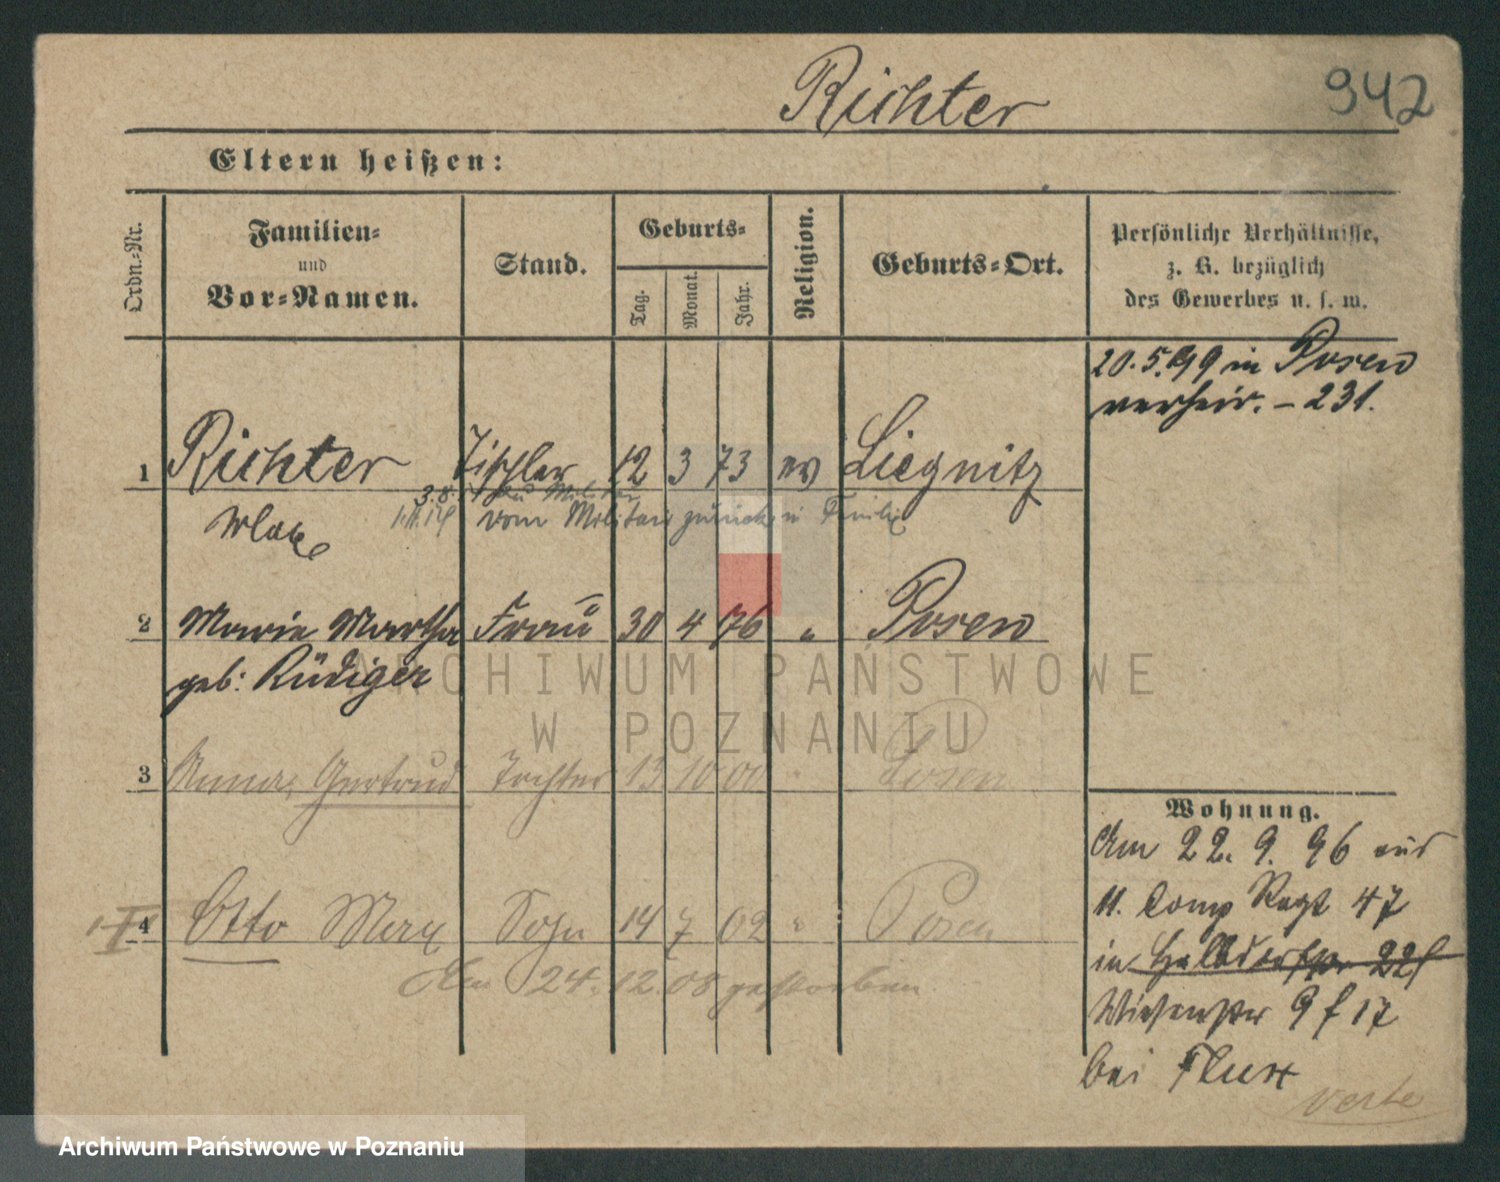 Richter
942
Eltern heißen:
Ordn.-Nr.
Familien-
und
Vor-Namen.
Stand.
Geburts-
Tag.
Monat.
Jahr.
Religion.
Geburts-Ort.
Persönliche Verhältnisse,
z. B. bezüglich
des Gewerbes u. s. w.
20.5.99 in Posen
verheir. - 231.
1 Richter Tischler 12 3 73 ev Liegnitz
Max
3.8. zu Militär
1.11.18 vom Militär zurück
2 Marie Martha Frau 30 4 76 " Posen
geb: Rüdiger
3 Anna, Gertrud Tochter 13 10 00 " Posen
Wohnung.
Am 22. 9. 96 aus
11. Comp Regt 47
in Halbdorfstr 22
Wiesenstr 9 f 17
bei
4 Otto Max Sohn 14 7 02 " Posen
Am 24.12.08 gestorben.
verte
ARCHIWUM PAŃSTWOWE
W POZNANIU
Archiwum Państwowe w Poznaniu